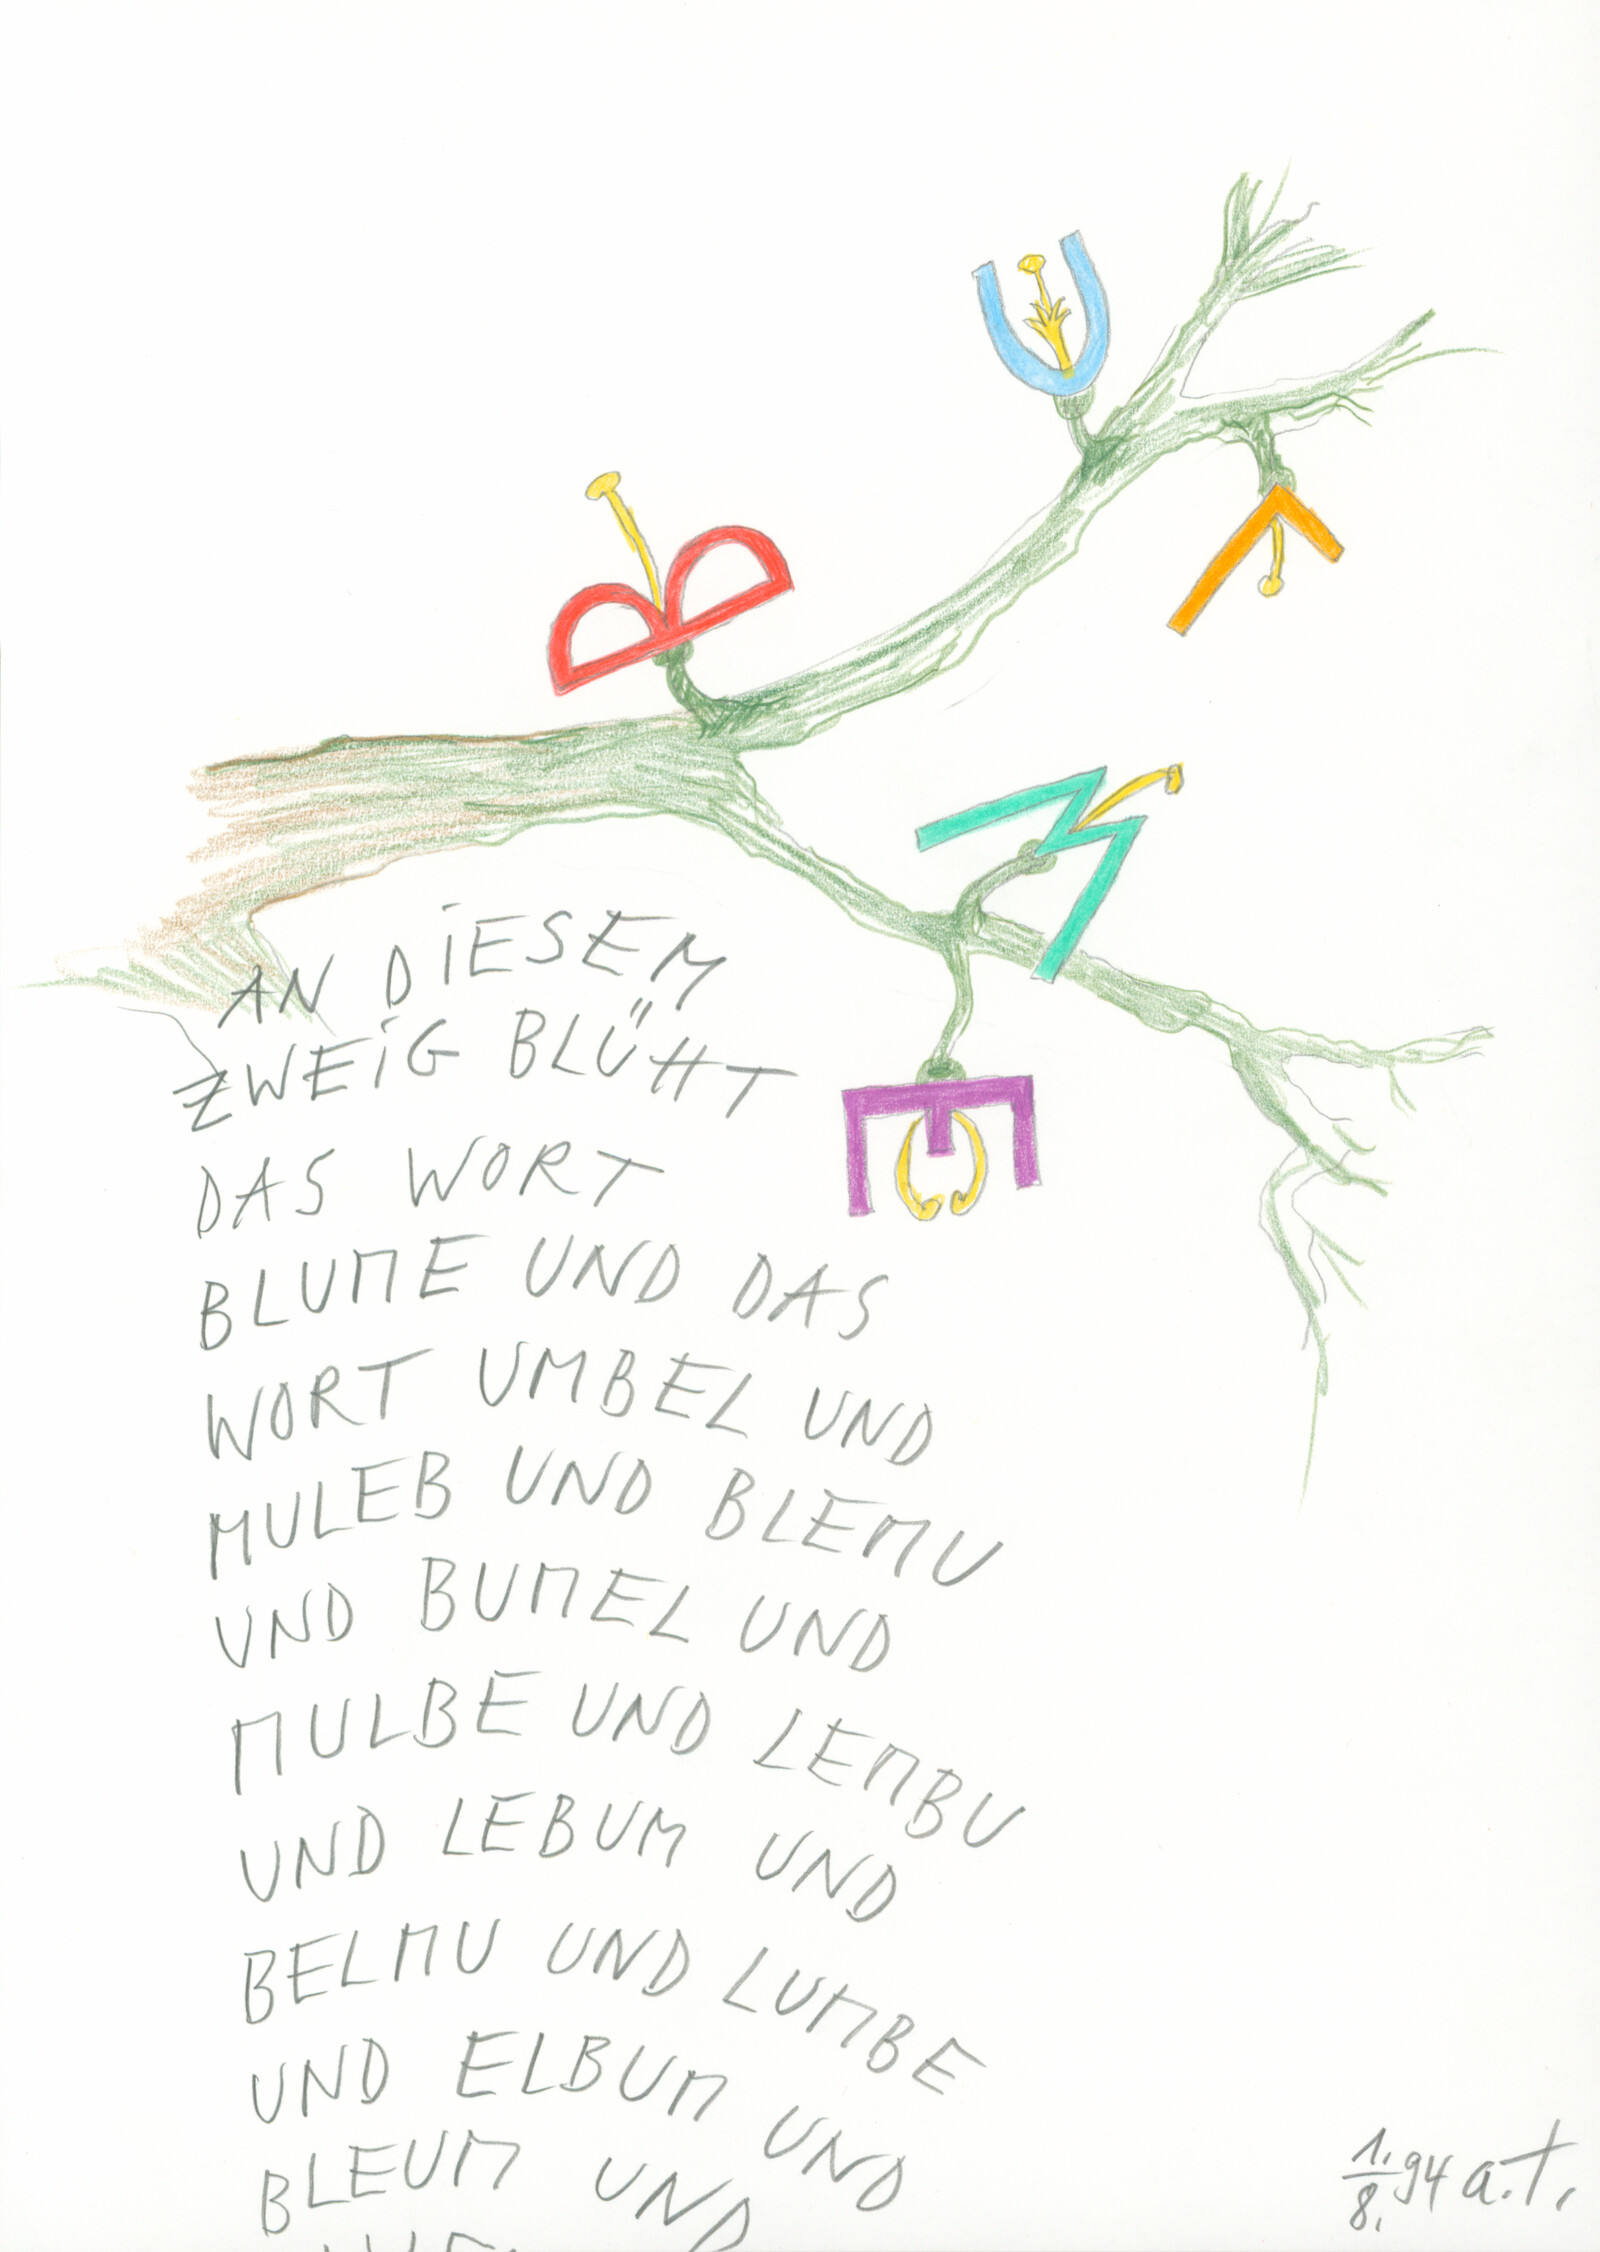 B
U
L
M
E
AN DiESEM
ZWEiG BLÜHT
DAS WORT
BLUME UND DAS
WORT UMBEL UND
MULEB UND BLEMU
UND BUMEL UND
MULBE UND LEMBU
UND LEBUM UND
BELMU UND LUMBE
UND ELBUM UND
BLEUM UND
1./8. 94 a.t.